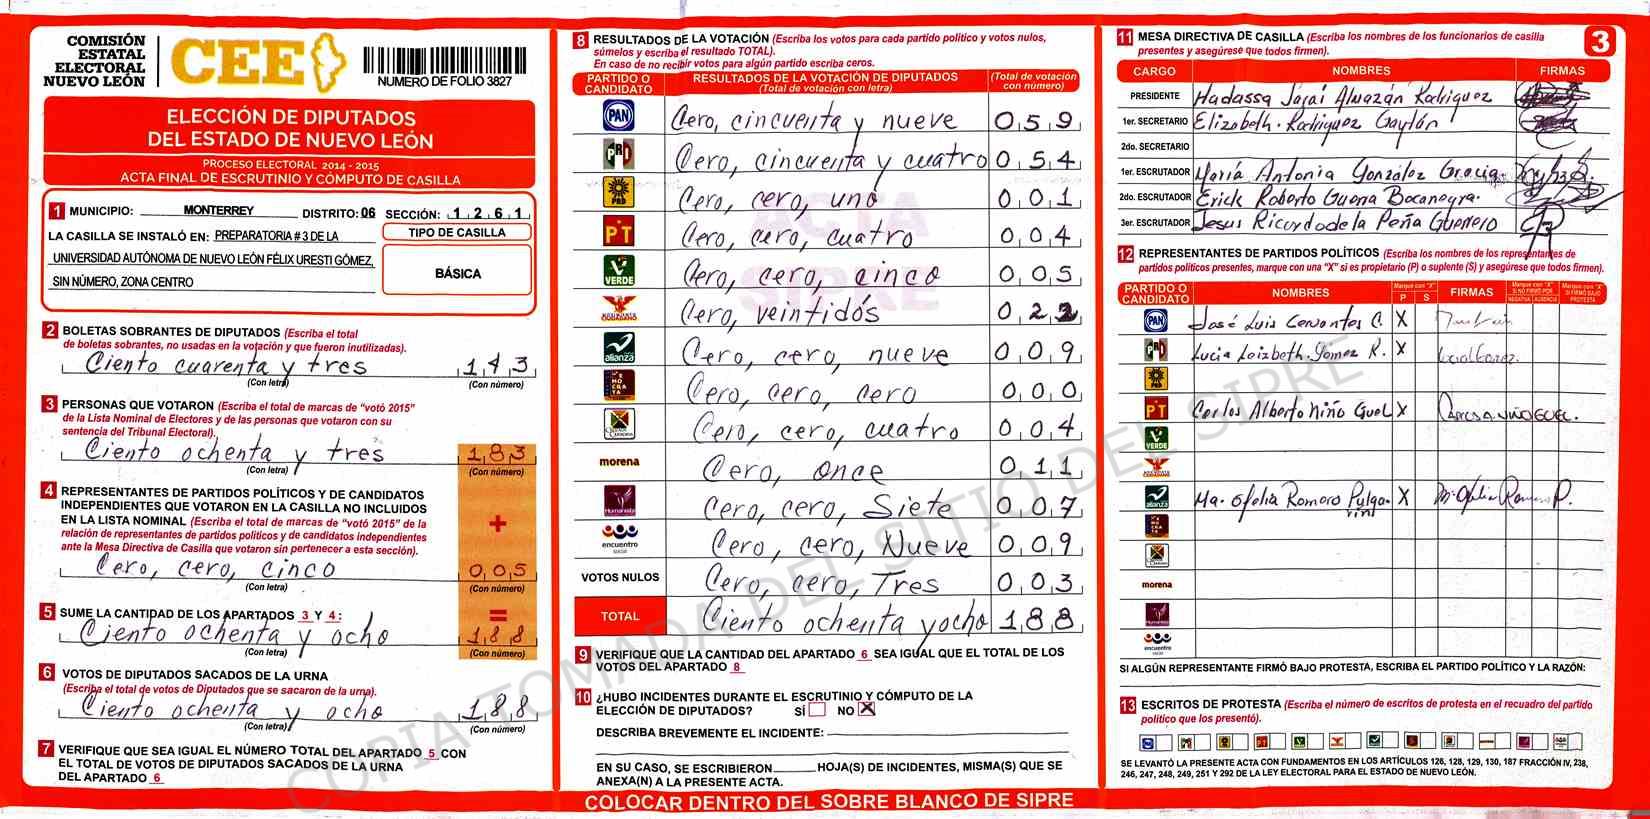 COMISIÓN
ESTATAL
ELECTORAL
NUEVO LEÓN
CEE
NUMERO DE FOLIO 3827
ELECCIÓN DE DIPUTADOS
DEL ESTADO DE NUEVO LEÓN
PROCESO ELECTORAL 2014 - 2015
ACTA FINAL DE ESCRUTINIO Y CÓMPUTO DE CASILLA
1 MUNICIPIO: MONTERREY DISTRITO: 06 SECCIÓN: 1 2 6 1
LA CASILLA SE INSTALÓ EN: PREPARATORIA # 3 DE LA
UNIVERSIDAD AUTÓNOMA DE NUEVO LEÓN FÉLIX URESTI GÓMEZ,
SIN NÚMERO, ZONA CENTRO
TIPO DE CASILLA
BÁSICA
2 BOLETAS SOBRANTES DE DIPUTADOS (Escriba el total
de boletas sobrantes, no usadas en la votación y que fueron inutilizadas).
Ciento cuarenta y tres 1 4 3
(Con letra) (Con número)
3 PERSONAS QUE VOTARON (Escriba el total de marcas de "votó 2015"
de la Lista Nominal de Electores y de las personas que votaron con su
sentencia del Tribunal Electoral).
Ciento ochenta y tres 1 8 3
(Con letra) (Con número)
4 REPRESENTANTES DE PARTIDOS POLÍTICOS Y DE CANDIDATOS
INDEPENDIENTES QUE VOTARON EN LA CASILLA NO INCLUIDOS
EN LA LISTA NOMINAL (Escriba el total de marcas de "votó 2015" de la
relación de representantes de partidos políticos y de candidatos independientes
ante la Mesa Directiva de Casilla que votaron sin pertenecer a esta sección).
+
Cero, cero, cinco 0 0 5
(Con letra) (Con número)
5 SUME LA CANTIDAD DE LOS APARTADOS 3 Y 4 : =
Ciento ochenta y ocho 1 8 8
(Con letra) (Con número)
6 VOTOS DE DIPUTADOS SACADOS DE LA URNA
(Escriba el total de votos de Diputados que se sacaron de la urna).
Ciento ochenta y ocho 1 8 8
(Con letra) (Con número)
7 VERIFIQUE QUE SEA IGUAL EL NÚMERO TOTAL DEL APARTADO 5 CON
EL TOTAL DE VOTOS DE DIPUTADOS SACADOS DE LA URNA
DEL APARTADO 6
8 RESULTADOS DE LA VOTACIÓN (Escriba los votos para cada partido político y votos nulos,
súmelos y escriba el resultado TOTAL).
En caso de no recibir votos para algún partido escriba ceros.
PARTIDO O CANDIDATO RESULTADOS DE LA VOTACIÓN DE DIPUTADOS (Total de votación con letra) (Total de votación con número)
PAN Cero, cincuenta y nueve 0 5 9
PRI Cero, cincuenta y cuatro 0 5 4
PRD Cero, cero, uno 0 0 1
PT Cero, cero, cuatro 0 0 4
VERDE Cero, cero, cinco 0 0 5
Cero, veintidós 0 2 2
alianza Cero, cero, nueve 0 0 9
DEMOCRATA Cero, cero, cero 0 0 0
Cero, cero, cuatro 0 0 4
morena Cero, once 0 1 1
Humanista Cero, cero, Siete 0 0 7
encuentro social Cero, cero, Nueve 0 0 9
VOTOS NULOS Cero, cero, Tres 0 0 3
TOTAL Ciento ochenta y ocho 1 8 8
ACTA
SIPRE
9 VERIFIQUE QUE LA CANTIDAD DEL APARTADO 6 SEA IGUAL QUE EL TOTAL DE LOS
VOTOS DEL APARTADO 8
10 ¿HUBO INCIDENTES DURANTE EL ESCRUTINIO Y CÓMPUTO DE LA
ELECCIÓN DE DIPUTADOS? SÍ NO X
DESCRIBA BREVEMENTE EL INCIDENTE:
EN SU CASO, SE ESCRIBIERON HOJA(S) DE INCIDENTES, MISMA(S) QUE SE
ANEXA(N) A LA PRESENTE ACTA.
COLOCAR DENTRO DEL SOBRE BLANCO DE SIPRE
11 MESA DIRECTIVA DE CASILLA (Escriba los nombres de los funcionarios de casilla
presentes y asegúrese que todos firmen).
3
CARGO NOMBRES FIRMAS
PRESIDENTE Hadassa Sarai Almazán Rodriguez
1er. SECRETARIO Elizabeth. Rodriguez Gaytán
2do. SECRETARIO
1er. ESCRUTADOR María Antonia González Gracia
2do. ESCRUTADOR Erick Roberto Guerra Bocanegra.
3er. ESCRUTADOR Jesus Ricardo de la Peña Guerrero
12 REPRESENTANTES DE PARTIDOS POLÍTICOS (Escriba los nombres de los representantes de
partidos políticos presentes, marque con una "X" si es propietario (P) o suplente (S) y asegúrese que todos firmen).
PARTIDO O CANDIDATO NOMBRES Marque con "X" P S FIRMAS Marque con "X" SI NO FIRMÓ POR NEGATIVA AUSENCIA Marque con "X" SI FIRMÓ BAJO PROTESTA
PAN José Luis Cervantes C. X
PRI Lucia Loizbeth. Gomez R. X
PRD
PT Carlos Alberto Niño Guel X
VERDE
alianza Ma. Ofelia Romero Pulga X
rin
morena
Humanista
encuentro social
SI ALGÚN REPRESENTANTE FIRMÓ BAJO PROTESTA, ESCRIBA EL PARTIDO POLÍTICO Y LA RAZÓN:
13 ESCRITOS DE PROTESTA (Escriba el número de escritos de protesta en el recuadro del partido
político que los presentó).
SE LEVANTÓ LA PRESENTE ACTA CON FUNDAMENTOS EN LOS ARTÍCULOS 126, 128, 129, 130, 187 FRACCIÓN IV, 238,
246, 247, 248, 249, 251 Y 292 DE LA LEY ELECTORAL PARA EL ESTADO DE NUEVO LEÓN.
COPIA TOMADA DEL SITIO DEL SIPRE